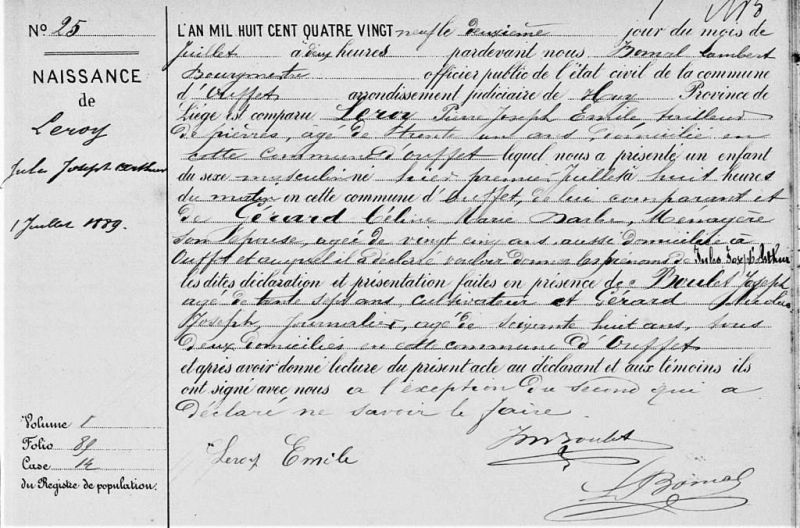 N° 25
NAISSANCE
de
Leroy
Jules Joseph Arthur
1 Juillet 1889.
Volume 1
Folio 89
Case 12
du Registre de population.
L'AN MIL HUIT CENT QUATRE VINGT neuf le deuxième jour du mois de
Juillet à deux heures pardevant nous Bomal Lambert
Bourgmestre officier public de l'état civil de la commune
d'Ouffet arrondissement judiciaire de Huy Province de
Liége est comparu Leroy Pierre Joseph Emile tailleur
de pierres, agé de trente un ans, domicilié en
cette commune d'Ouffet lequel nous a présenté un enfant
du sexe masculin né hier premier Juillet à huit heures
du matin en cette commune d'Ouffet, de lui comparant et
de Gérard Céline Marie Barbe, Menagère
son épouse, agée de vingt cinq ans aussi domiciliée à
Ouffet et auquel il a déclaré vouloir donner les prénoms de Jules Joseph Arthur
les dites déclaration et présentation faites en présence de Boulet Joseph
agé de trente sept ans, cultivateur et Gérard Nicolas
Joseph, journalier, agé de soixante huit ans, tous
deux domiciliés en cette commune d'Ouffet
et après avoir donné lecture du présent acte au déclarant et aux témoins ils
ont signé avec nous a l'éxception du second qui a
déclaré ne savoir le faire.
Leroy Emile
Boulet
L Bomal